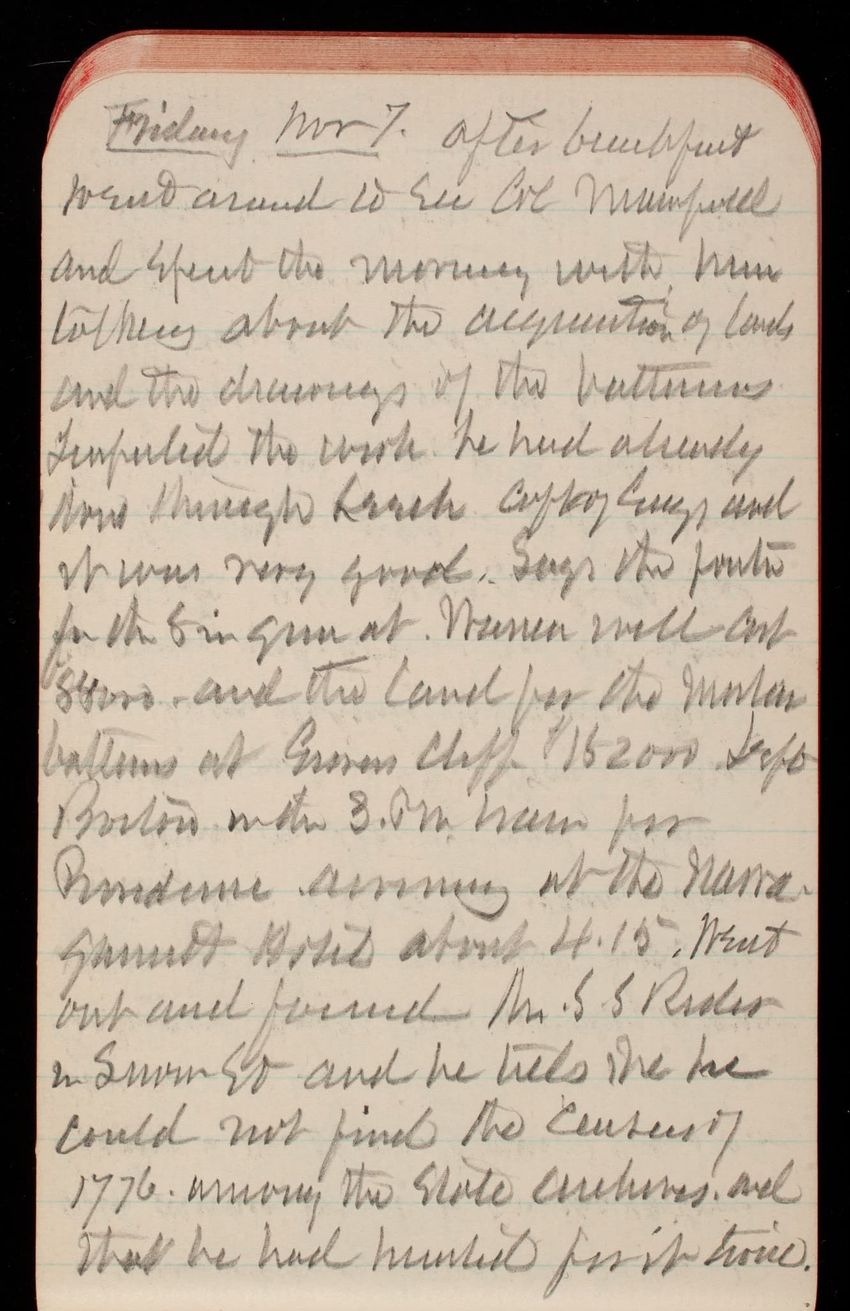 Friday Nov 7. after breakfast
went around to see Col Mansfield
and spent the morning with him
talking about the acquisition of lands
and the drawings of the batteries
Inspected the work he had already
done through Leach Capt of Engs and
it was very good. Says the
for the 8 in gun at Warren will cost
and the land for the Mortar
batteries at Grovers Cliff $152000 Left
Boston in the 3. PM train for
Providence arriving at the Narra-
gansett Hotel about 4.15. Went
out and found Mr. S S Rider
in Snow St and he tells me he
could not find the Census of
1776. among the State archives. and
that he had hunted for it twice.